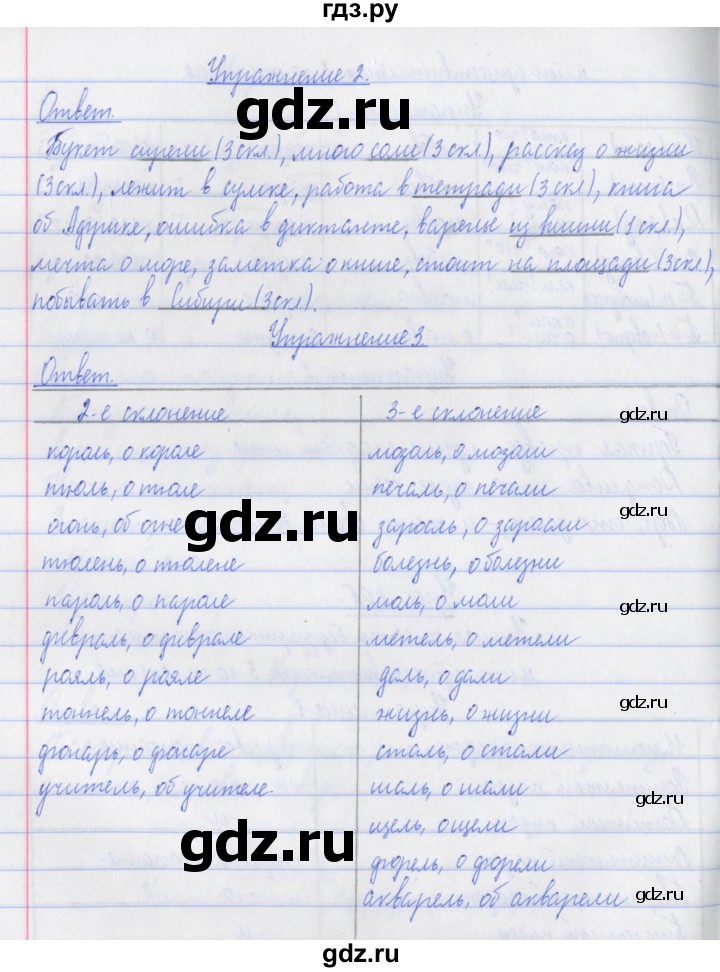 гдз.ру
Упражнение 2.
Ответ.
gdz.ru
Букет сирени (3 скл.), много соли (3 скл.), рассказ о жизни
(3 скл.), лежит в сумке, работа в тетради (3 скл.), книга
об Африке, ошибка в диктанте, варенье из вишни (1 скл.),
мечта о море, заметка о книге, стоит на площади (3 скл.),
побывать в Сибири (3 скл.).
Упражнение 3.
Ответ.
2-е склонение 3-е склонение gdz.ru
король, о короле мозоль, о мозоли
тюль, о тюле печаль, о печали
огонь, об огне gdz.ru заросль, о заросли gdz.ru
тюлень, о тюлене болезнь, о болезни
пароль, о пароле моль, о моли gdz.ru
февраль, о феврале метель, о метели
рояль, о рояле даль, о дали
тоннель, о тоннеле жизнь, о жизни gdz.ru
фонарь, о фонаре сталь, о стали
учитель, об учителе. шаль, о шали gdz.ru
gdz.ru щель, о щели
форель, о форели
акварель, об акварели gdz.ru
gdz.ru